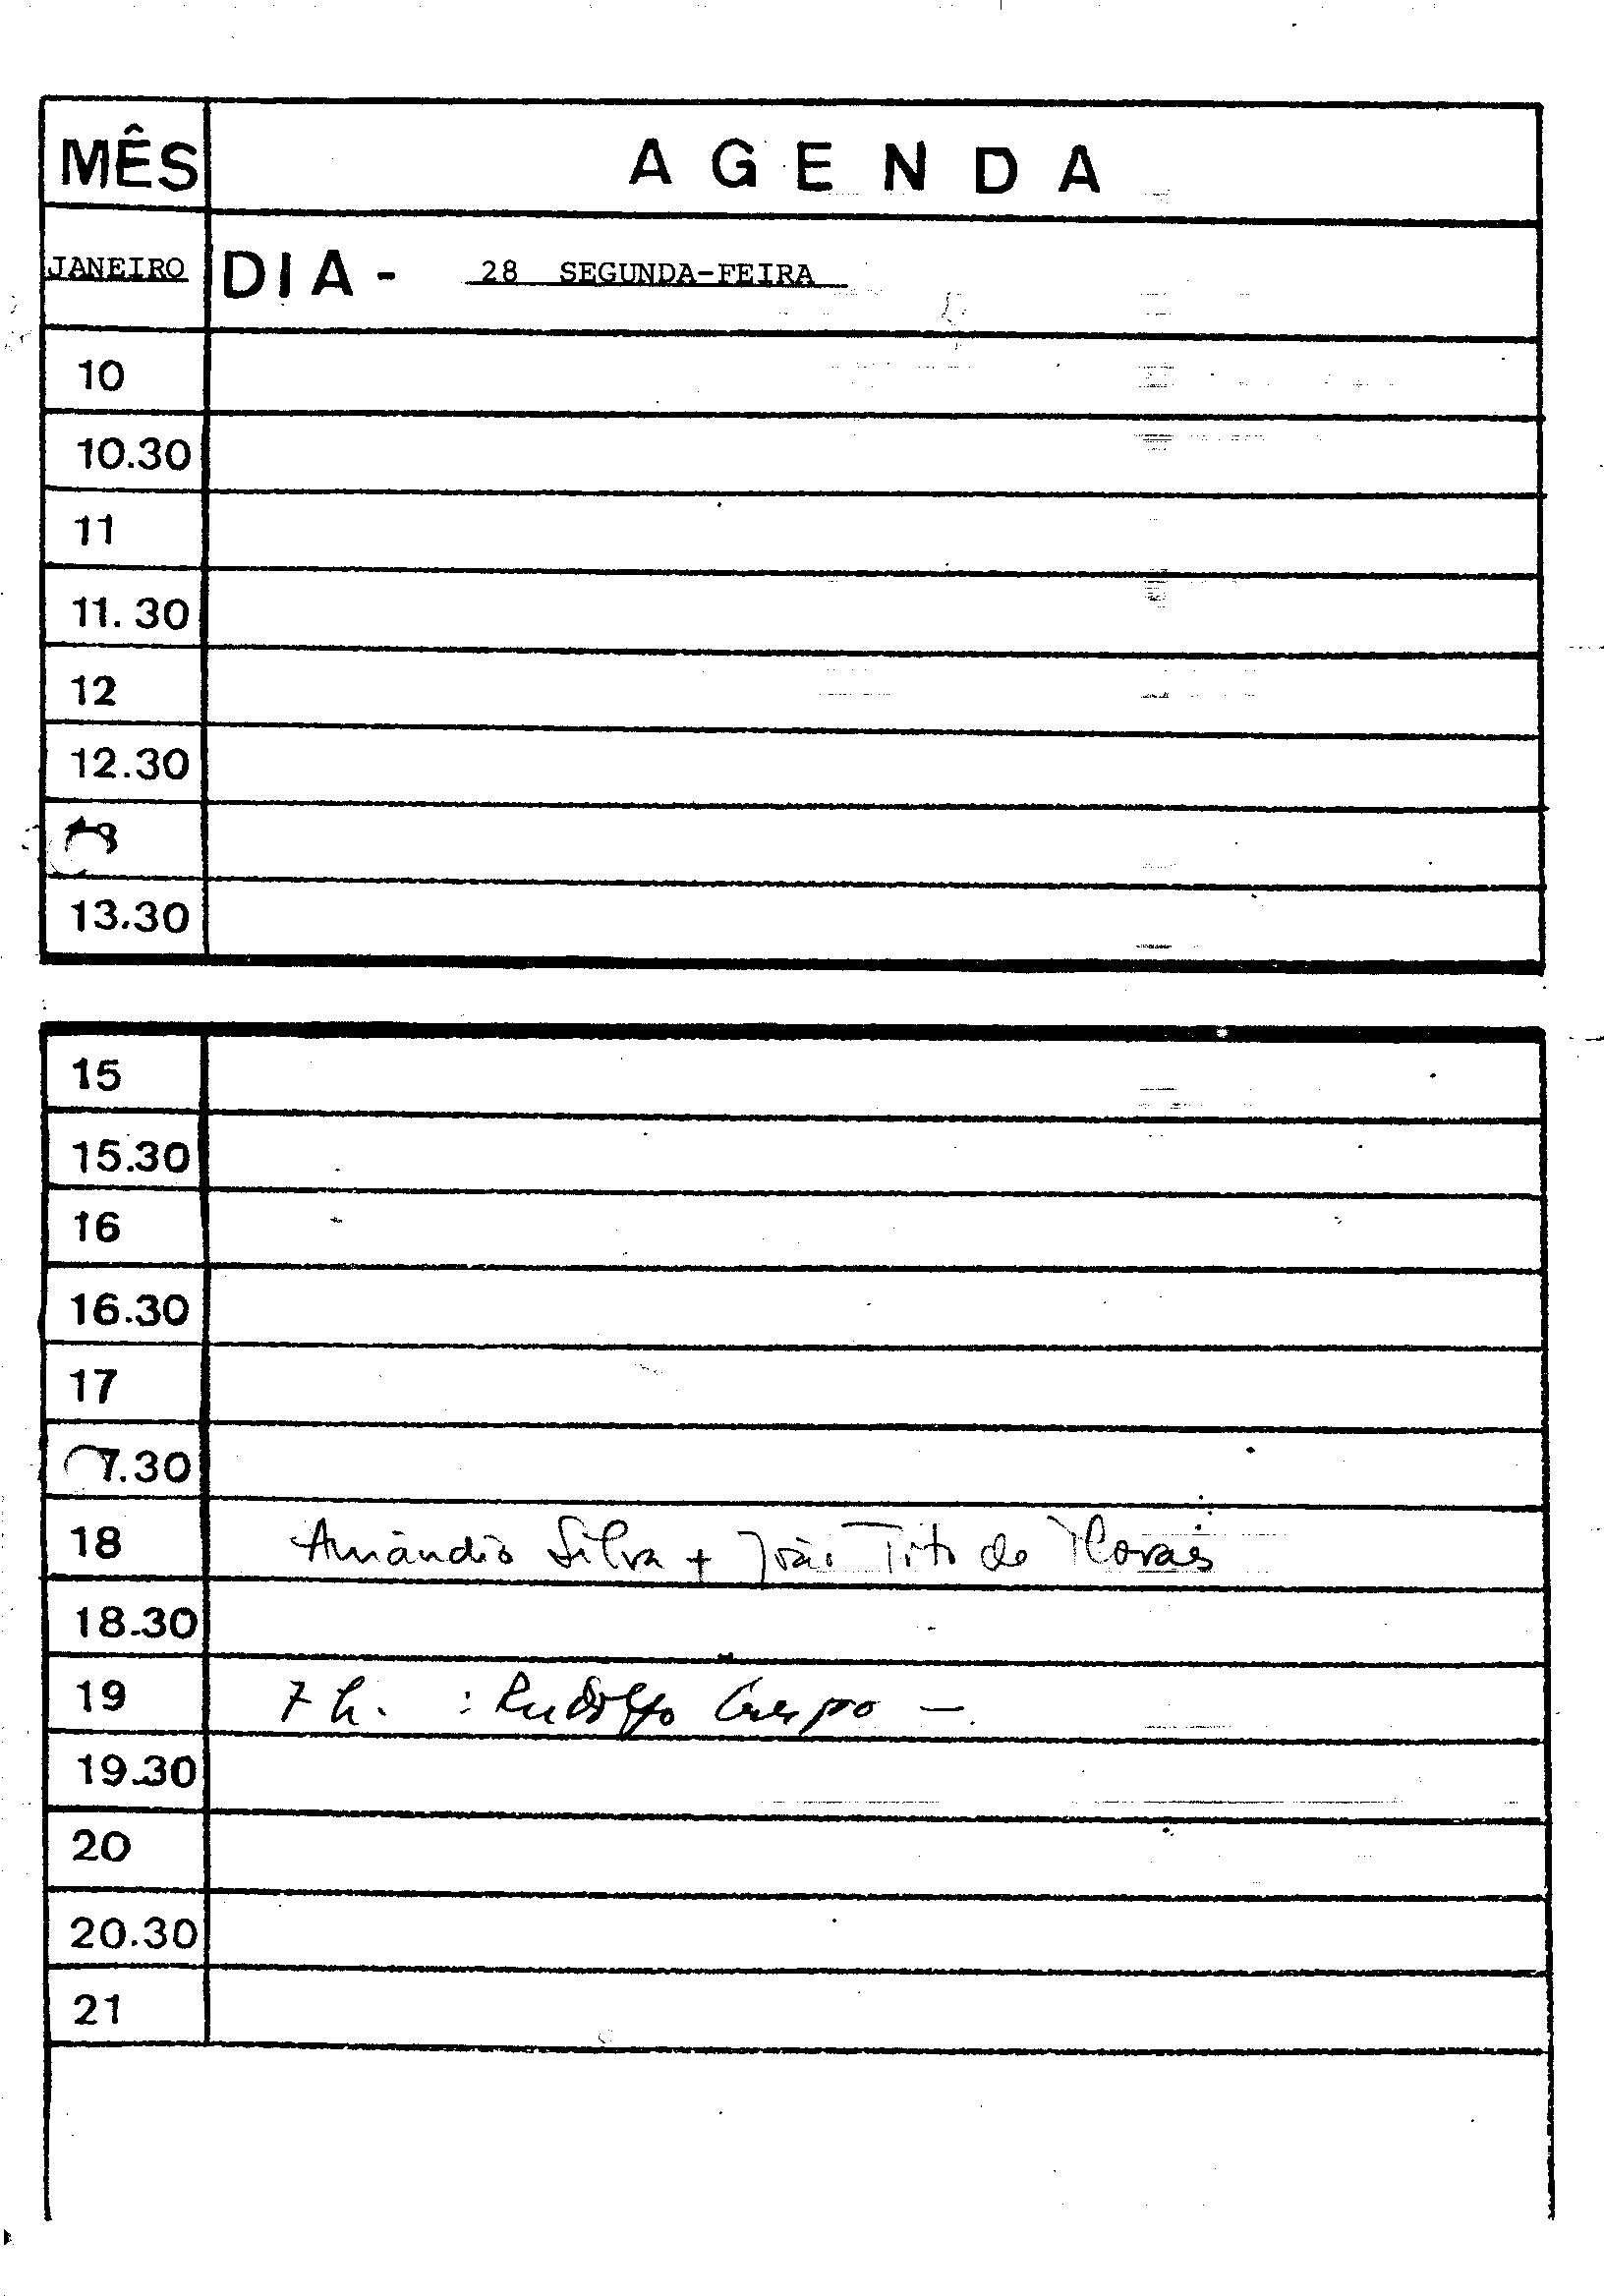 MÊS A G E N D A
JANEIRO DIA - 28 SEGUNDA-FEIRA
10
10.30
11
11.30
12
12.30
13
13.30
15
15.30
16
16.30
17
7.30
18 Amândio Silva + João Tito de Morais
18.30
19 7 h. : Rudolfo Crespo —
19.30
20
20.30
21